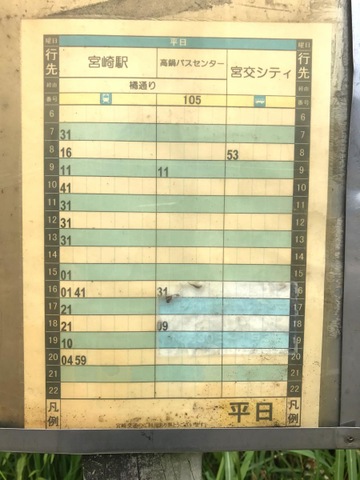 曜日 平日 曜日
行先 宮崎駅 高鍋バスセンター 宮交シティ 行先
経由 橘通り 経由
番号 105 番号
6 6
7 31 7
8 16 53 8
9 11 11 9
10 41 10
11 31 11
12 31 12
13 31 13
14 14
15 01 15
16 01 41 31 16
17 21 17
18 21 09 18
19 10 19
20 04 59 20
21 21
22 22
凡例 平日 凡例